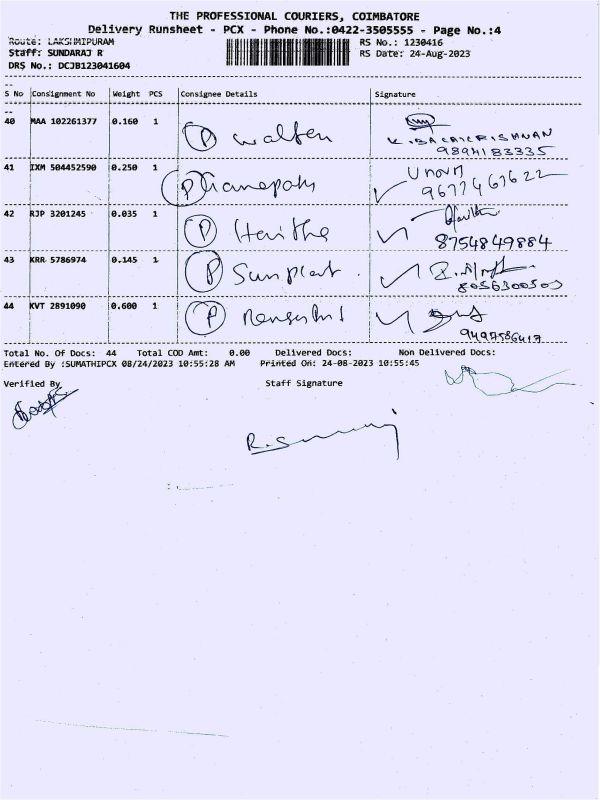 THE PROFESSIONAL COURIERS, COIMBATORE
Delivery Runsheet - PCX - Phone No.:0422-3505555 - Page No.:4
Route: LAKSHMIPURAM RS No.: 1230416
Staff: SUNDARAJ R RS Date: 24-Aug-2023
DRS No.: DCJB123041604
S No Consignment No Weight PCS Consignee Details Signature
40 MAA 102261377 0.160 1 P K. BALAKRISHNAN
9894183335
41 IXM 504452590 0.250 1 P
9677467622
42 RJP 3201245 0.035 1 P Haritha
8754849884
43 KRR 5786974 0.145 1 P
8056300503
44 KVT 2891090 0.600 1 P
9497586417
Total No. Of Docs: 44 Total COD Amt: 0.00 Delivered Docs: Non Delivered Docs:
Entered By :SUMATHIPCX 08/24/2023 10:55:28 AM Printed On: 24-08-2023 10:55:45
Verified By Staff Signature